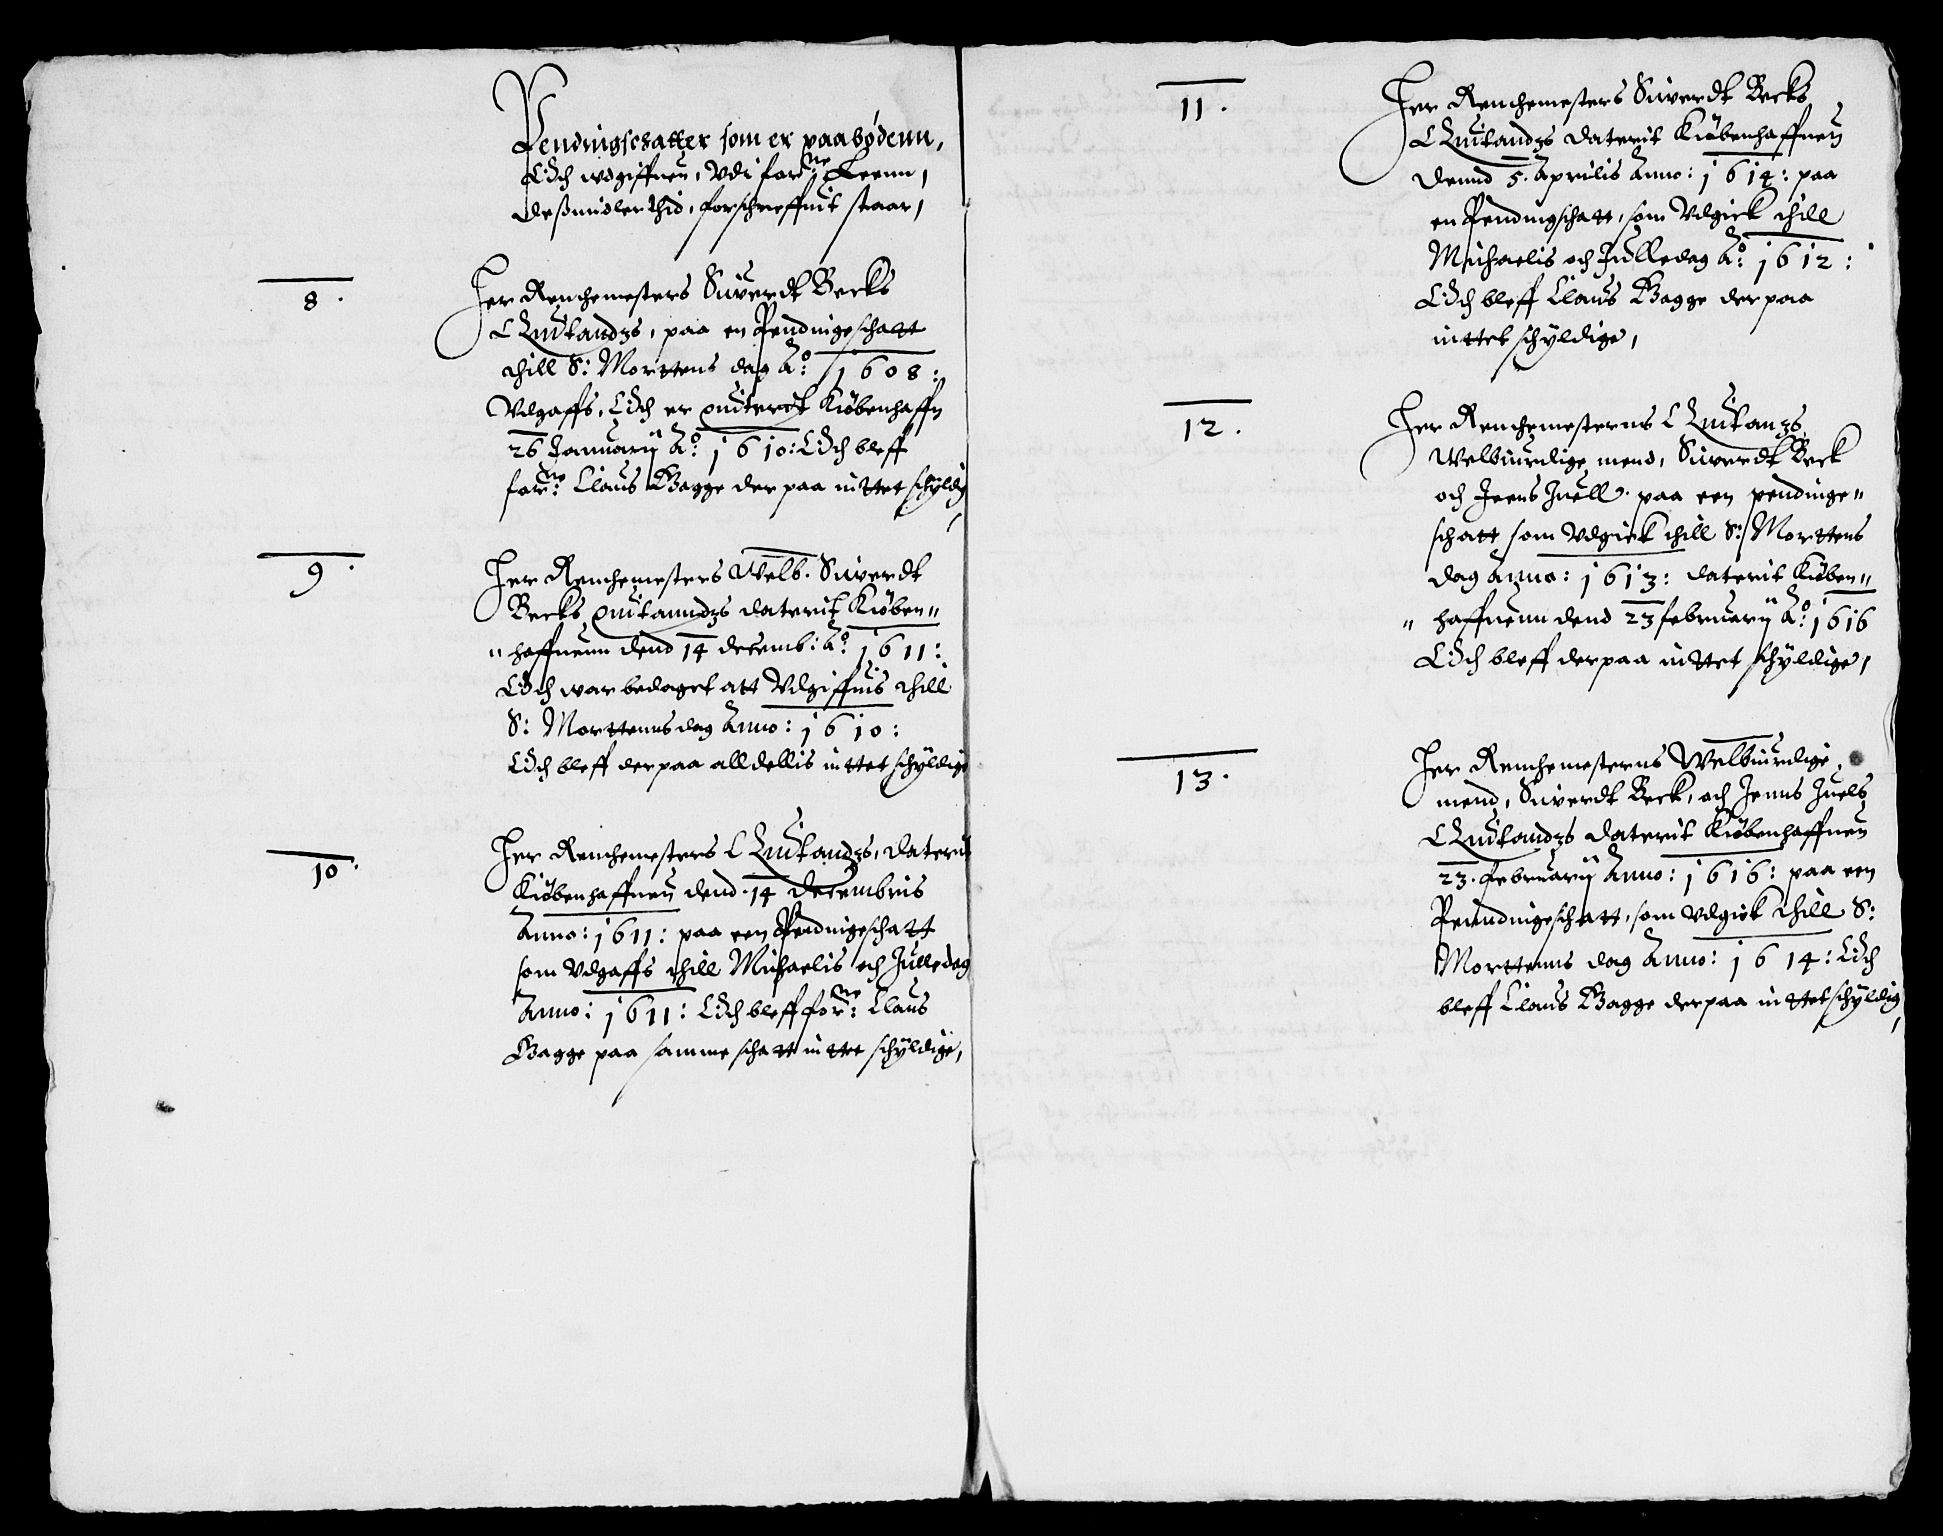 Pendingschatter som er paabødenn,
Och wdgiffuen, Vdi forne: Leenn,
deßmidlerthid, forschreffuit staar,
8.
Her Renthemesters Siuerdt Becks
Quitandzs, paa en Pendingeschatt
thill S: Morttens dag Ao: 1608:
Vdgaffs, Och er quiterit Kiøbenhaffn
26 Januarij Ao: 1610: Och bleff
forne: Claus Bagge der paa inttet schyldig,
9.
Her Renthemesters Welb. Siuerdt
Becks quitanndzs daterit Kiøben"
" haffnenn dend 14 decemb: Ao: 1611:
Och war bedaget att Vdgiffuis thill
S: Morttenns dag Anno: 1610:
Och bleff der paa alldellis inttet schyldige
10.
Her Renthemesters Quitandzs, daterit
Kiøbenhaffnen dend. 14 decembris
Anno: 1611: paa een Pendingeschatt
som Vdgaffs thill Michaelis och Julledag
Anno: 1611: Och bleff forne: Claus
Bagge paa samme schatt inttet schyldige,
11.
Her Renthemesters Siuerdt Becks
Quitandzs daterit Kiøbenhaffnen
dennd 5. Aprilis Anno: 1614: paa
en Pendingschatt, som Vdgick thill
Michaelis och Julledag Ao: 1612:
Och bleff Claus Bagge der paa
inttet schyldige,
12.
Her Renthemesterns Quitanzs,
Welbiurdige mend, Siuerdt Beck
och Jens Juell. paa een pendinge"
schatt som Vdgick thill S: Morttens
dag Anno: 1613: daterit Kiøben"
" haffnenn dend 23 februarij Ao: 1616
Och bleff derpaa inttet schyldige,
13.
Her Renthemesterns Welbiurdige,
mend, Siuerdt Beck, och Jenns Juels
Quitandzs daterit Kiøbenhaffnen
23. februarij Anno: 1616: paa een
Penndingeschatt, som Vdgick thill S:
Morttenns dag Anno: 1614: Och
bleff Claus Bagge der paa inttet schyldig,